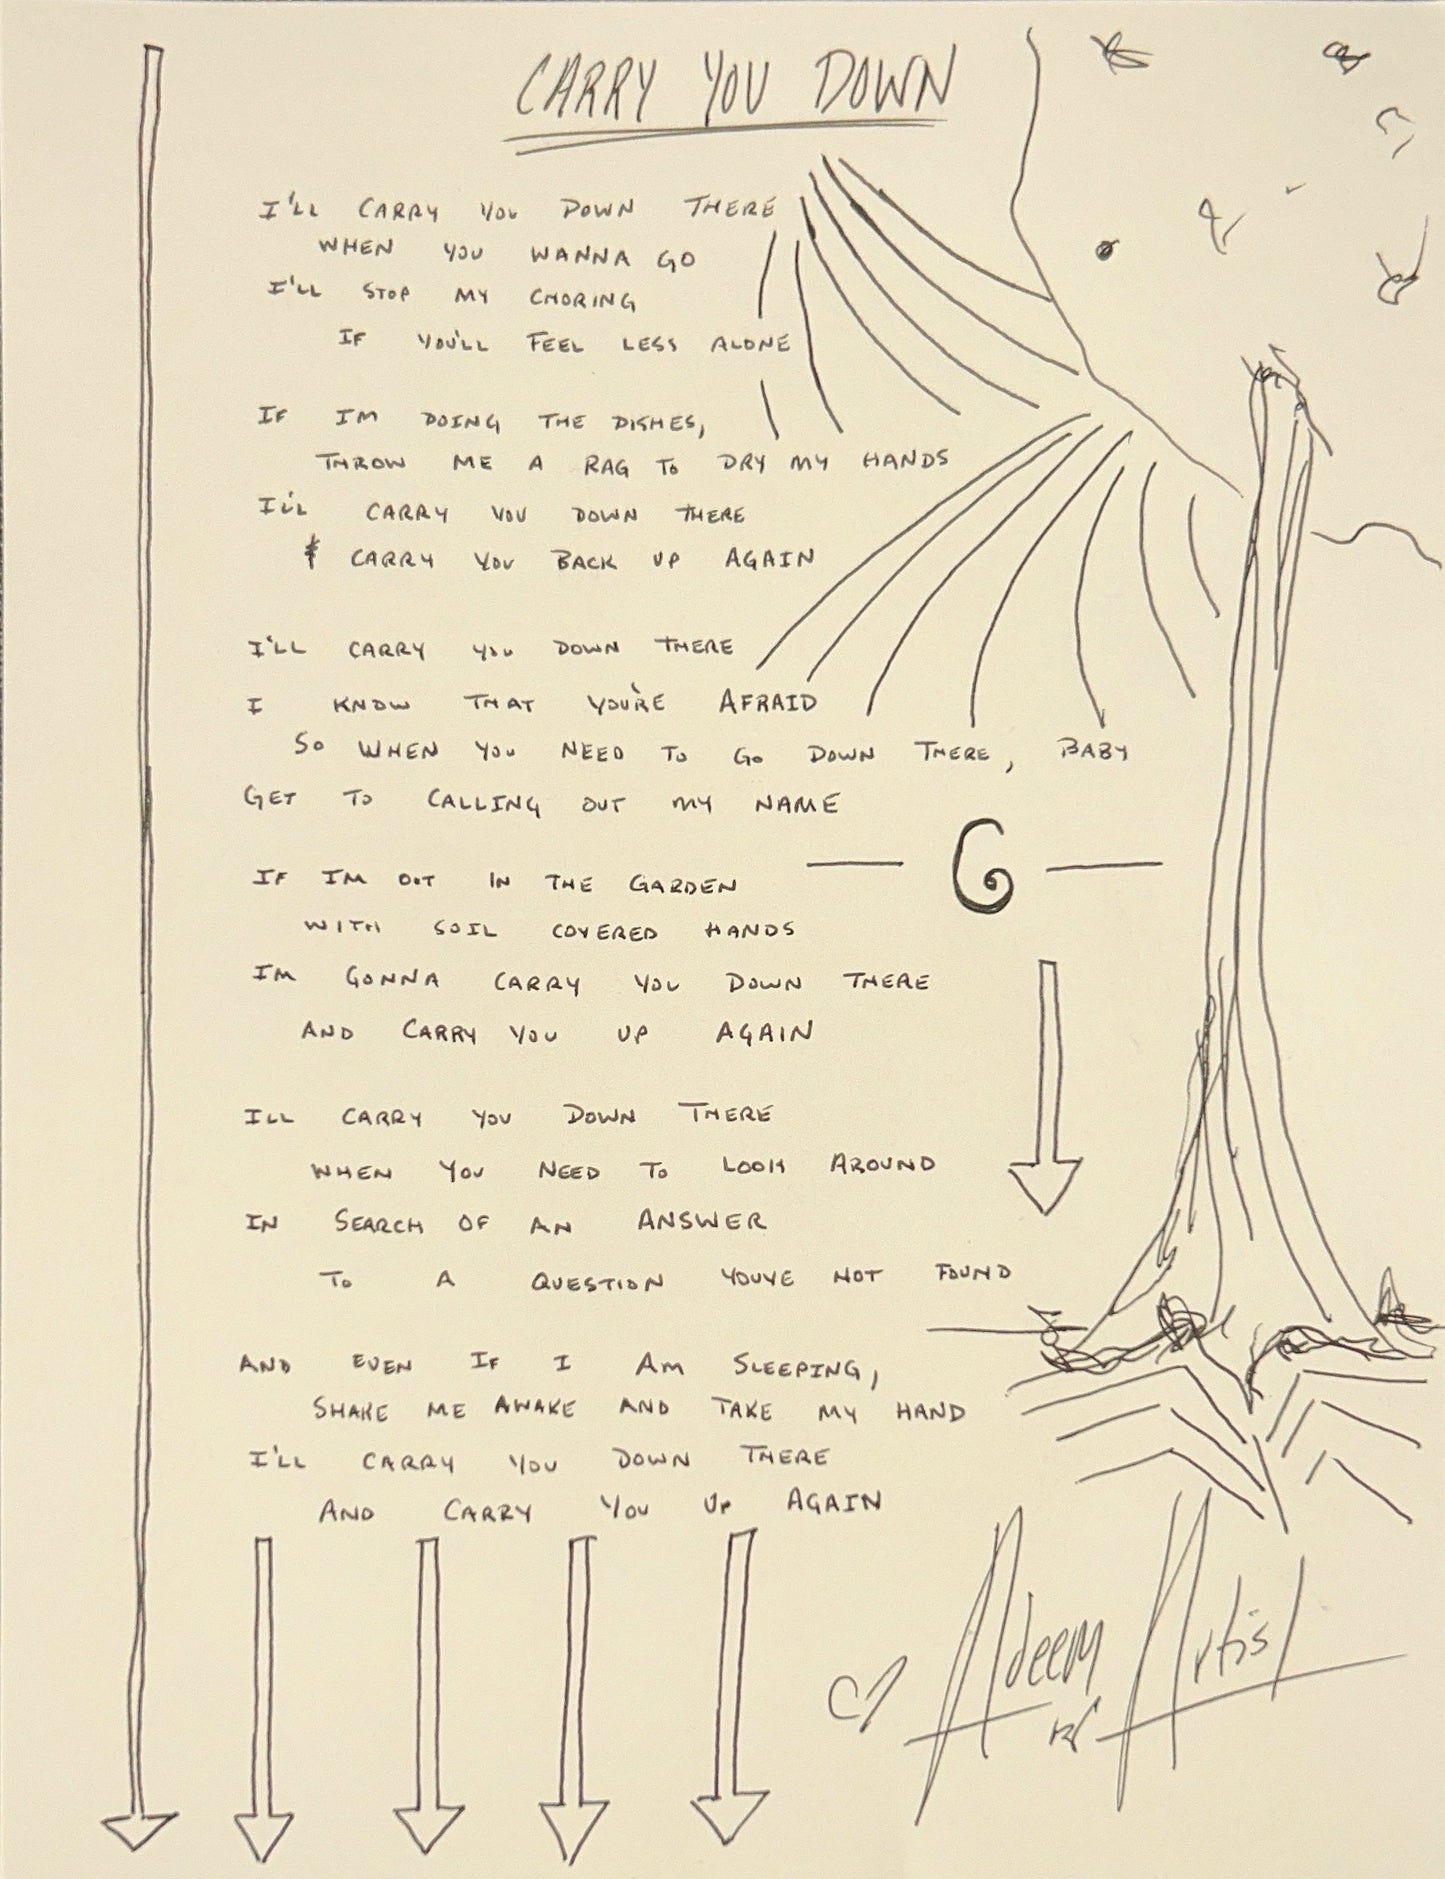 CARRY YOU DOWN
I'LL CARRY YOU DOWN THERE
WHEN YOU WANNA GO
I'LL STOP MY CHORING
IF YOU'LL FEEL LESS ALONE
IF IM DOING THE DISHES,
THROW ME A RAG TO DRY MY HANDS
I'LL CARRY YOU DOWN THERE
& CARRY YOU BACK UP AGAIN
I'LL CARRY YOU DOWN THERE
I KNOW THAT YOU'RE AFRAID
SO WHEN YOU NEED TO GO DOWN THERE, BABY
GET TO CALLING OUT MY NAME
IF IM OUT IN THE GARDEN
WITH SOIL COVERED HANDS
IM GONNA CARRY YOU DOWN THERE
AND CARRY YOU UP AGAIN
ILL CARRY YOU DOWN THERE
WHEN YOU NEED TO LOOK AROUND
IN SEARCH OF AN ANSWER
TO A QUESTION YOUVE NOT FOUND
AND EVEN IF I AM SLEEPING,
SHAKE ME AWAKE AND TAKE MY HAND
I'LL CARRY YOU DOWN THERE
AND CARRY YOU UP AGAIN
Adeem Artist